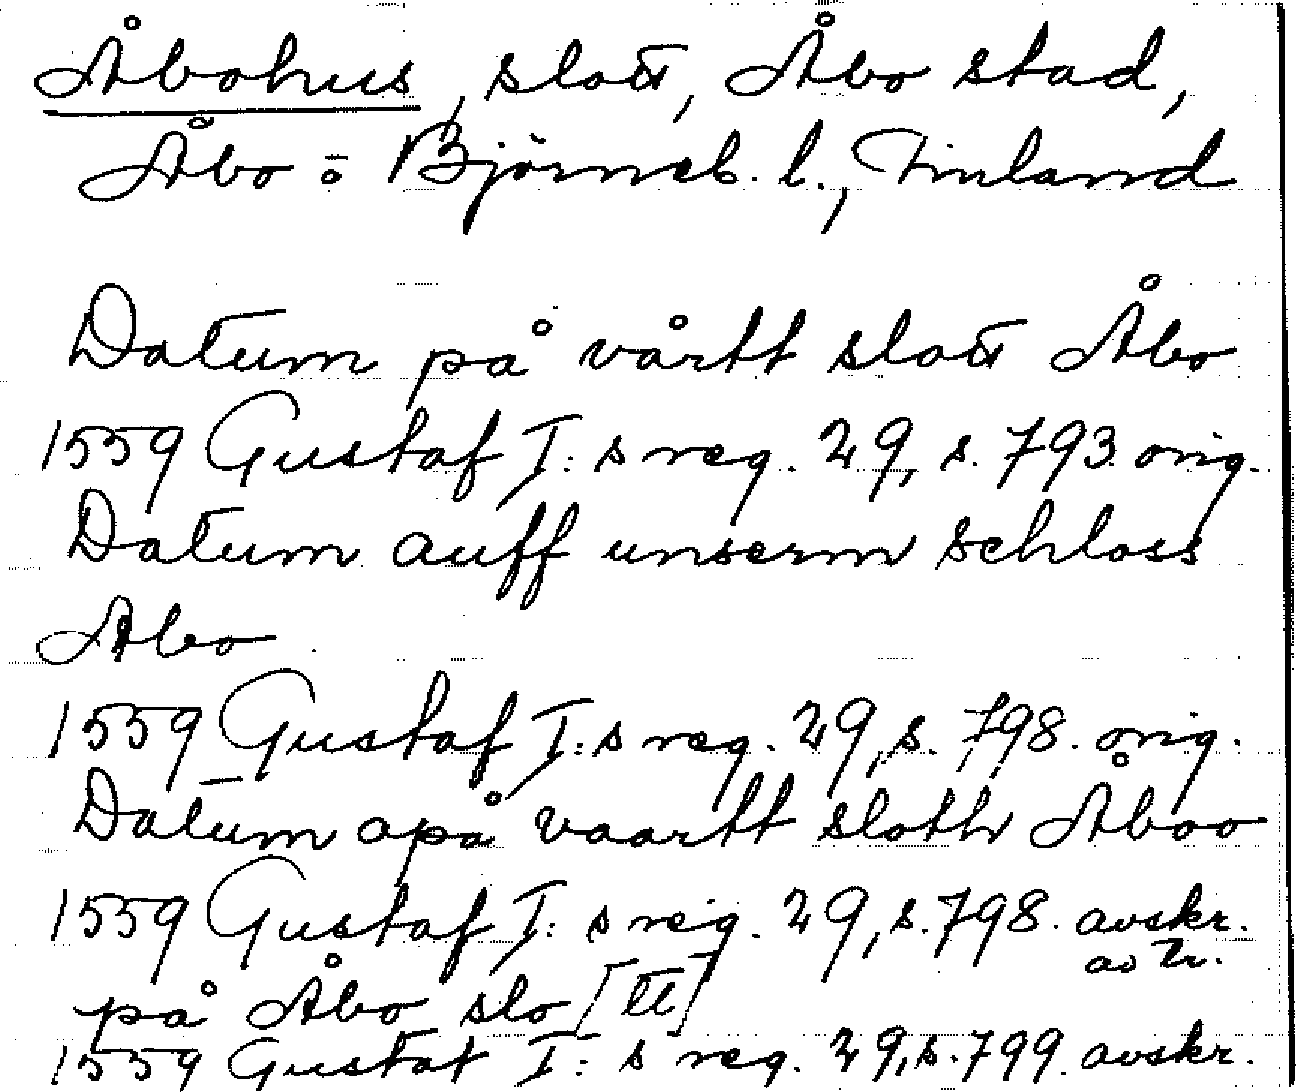 Åbohus, slott, Åbo stad,
Åbo = Björneb. l., Finland
Datum på vårtt slott Åbo
1559 Gustaf I: s reg. 29, s. 793. orig.
Datum auff unserm schloss
Åbo
1559 Gustaf I: s reg. 29, s. 798. orig.
Datum opå vaartt sloth Åboo
1559 Gustaf I: s reg. 29, s. 798. avskr.
av tr.
på Åbo slo [tt]
1559 Gustaf I: s reg. 29, s. 799. avskr.